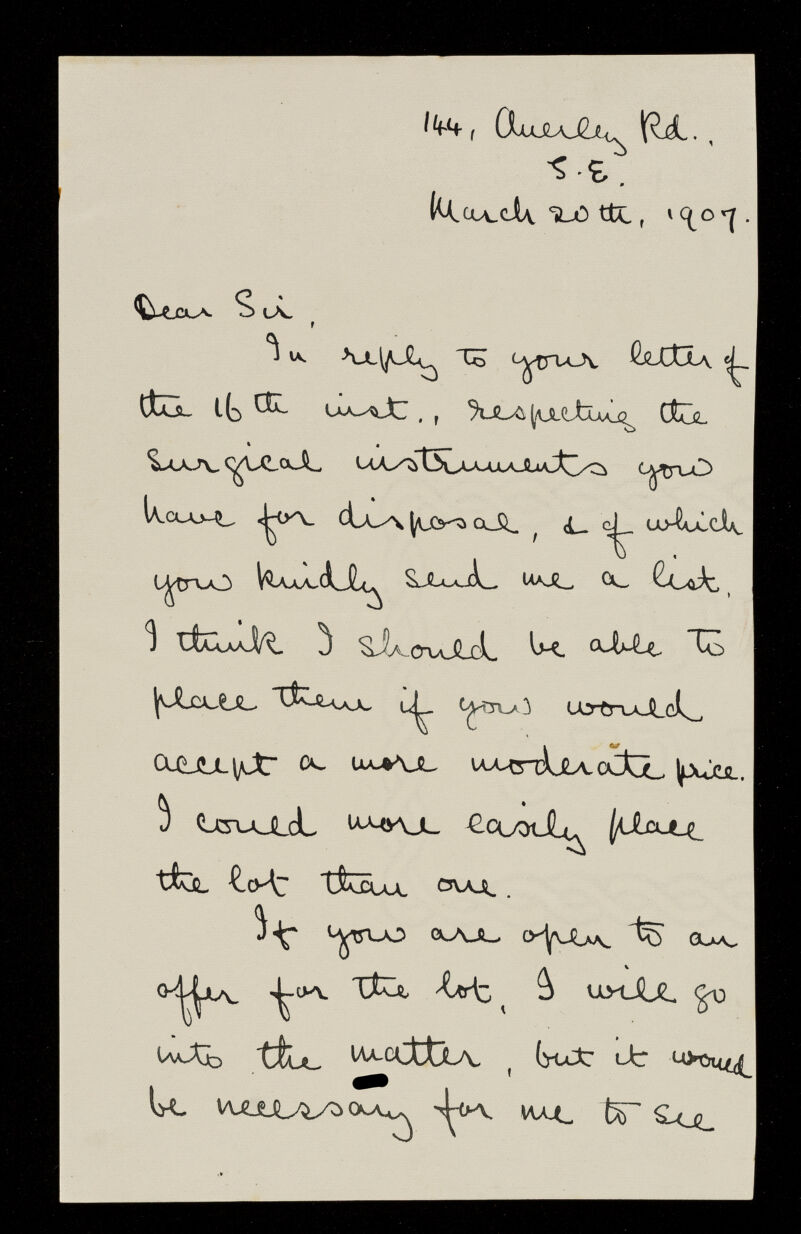 144, Anerley Rd.,
S.E.
March 20th, 1907.
Dear Sir,
In reply to your letter of
the 16th inst., respecting the
surgical instruments you
have for disposal, & of which
you kindly send me a list,
I think I should be able to
place them if you would
accept a more moderate price.
I could more easily place
the lot than one.
If you are open to an
offer for the lot, I will go
into the matter, but it would
be necessary for me to see